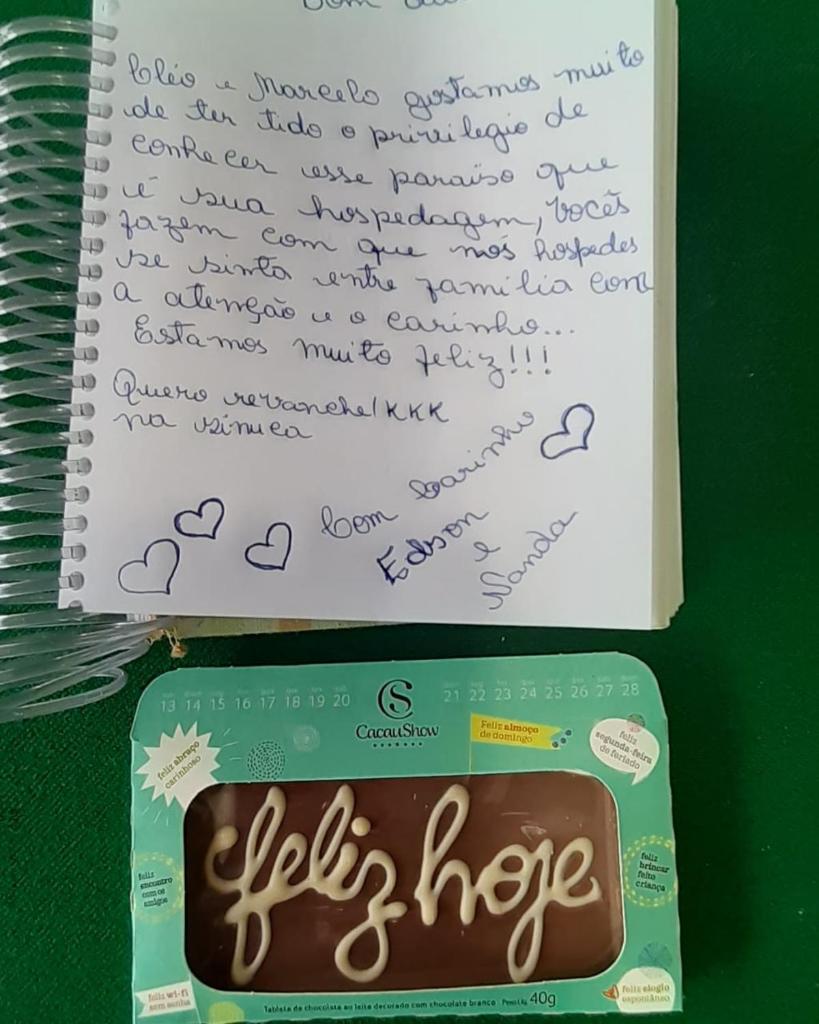 Cléo e Marcelo gostamos muito
de ter tido o privilegio de
conhecer esse paraiso que
é sua hospedagem, vocês
fazem com que nós hospedes
se sinta entre familia com
a atenção e o carinho...
Estamos muito feliz!!!
Quero revanche/KKK
na sinuca
Com Carinho
Edson
e
Nanda
13 14 15 16 17 18 19 20
21 22 23 24 25 26 27 28
CS
CacauShow
feliz abraço
carinhoso
Feliz almoço
de domingo
feliz
segunda-feira
de feriado
feliz hoje
feliz
encontro
com os
amigos
feliz
brincar
feito
criança
feliz wi-fi
sem senha
Tablete de chocolate ao leite decorado com chocolate branco - Peso Líq. 40g
feliz elogio
espontâneo